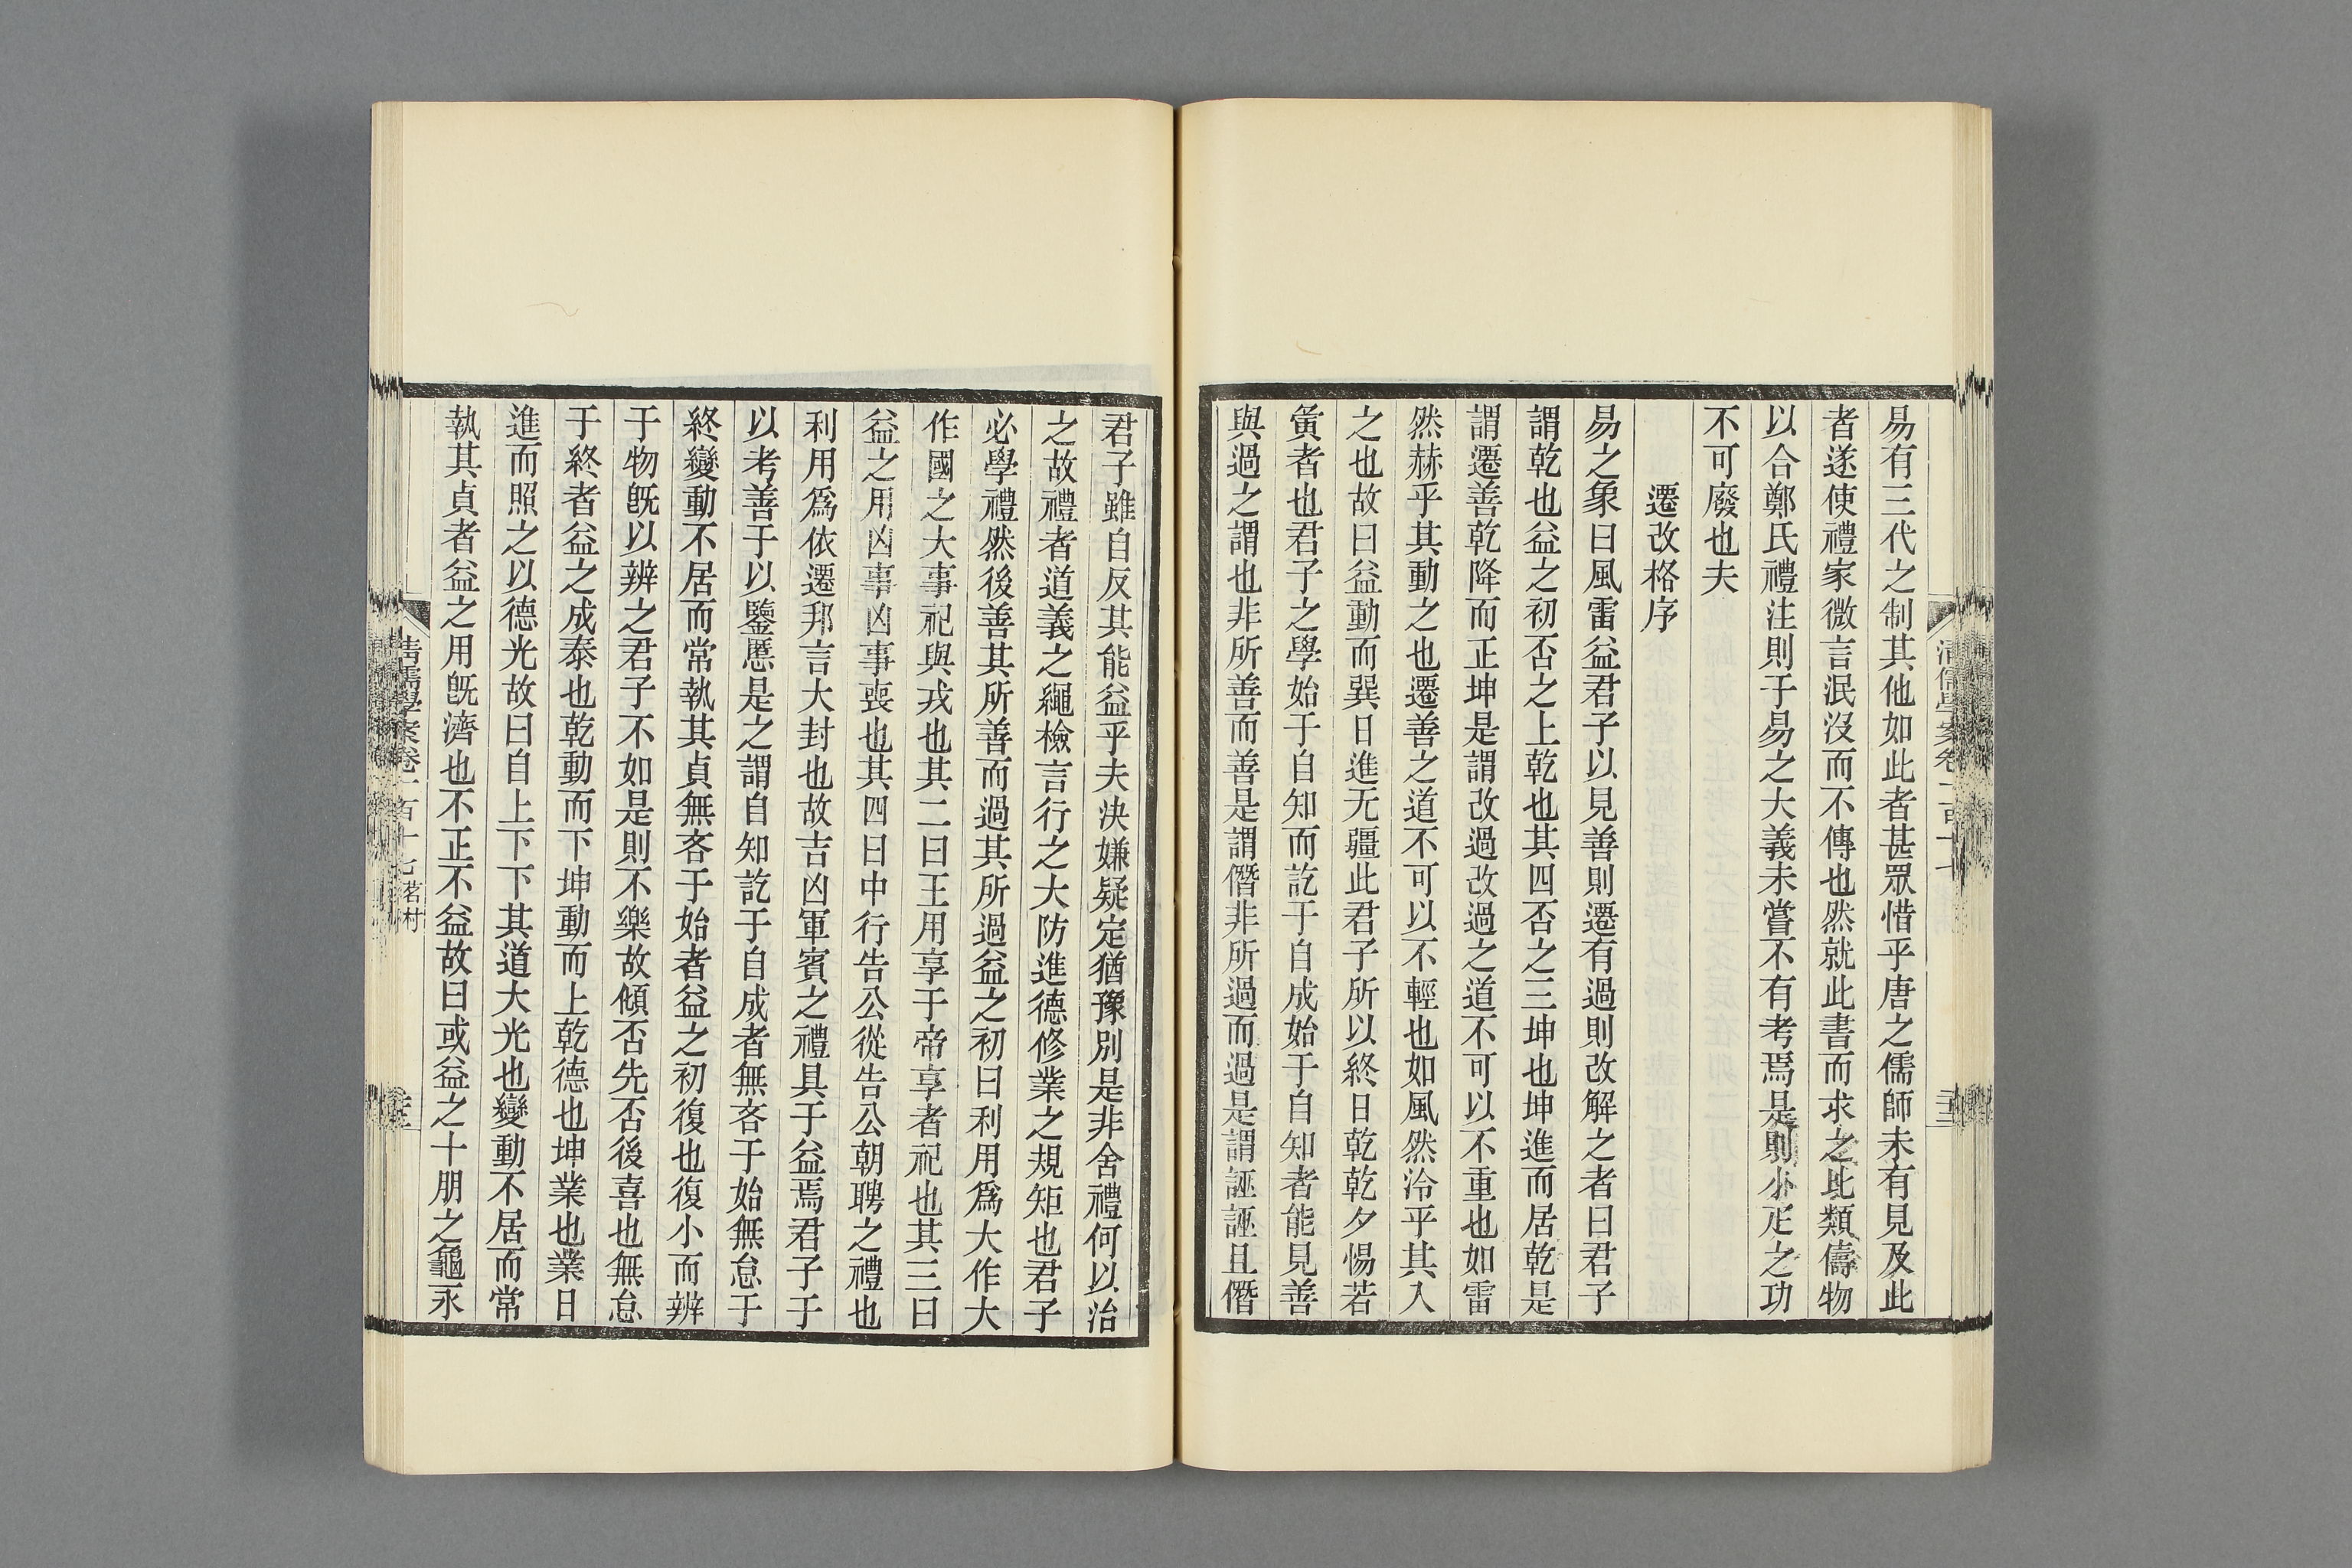 易有三代之制其他如此者甚眾惜乎唐之儒師未有見及此
者遂使禮家微言泯沒而不傳也然就此書而求之比類儔物
以合鄭氏禮注則于易之大義未嘗不有考焉是則小疋之功
不可廢也夫
遷改格序
易之象曰風雷益君子以見善則遷有過則改解之者曰君子
謂乾也益之初否之上乾也其四否之三坤也坤進而居乾是
謂遷善乾降而正坤是謂改過改過之道不可以不重也如雷
然赫乎其動之也遷善之道不可以不輕也如風然泠乎其入
之也故曰益動而巽日進无疆此君子所以終日乾乾夕惕若
夤者也君子之學始于自知而訖于自成始于自知者能見善
與過之謂也非所善而善是謂僭非所過而過是謂誣誣且僭
君子雖自反其能益乎夫決嫌疑定猶豫別是非舍禮何以治
之故禮者道義之繩檢言行之大防進德修業之規矩也君子
必學禮然後善其所善而過其所過益之初曰利用爲大作大
作國之大事祀與戎也其二曰王用享于帝享者祀也其三曰
益之用凶事凶事喪也其四曰中行告公從告公朝聘之禮也
利用爲依遷邦言大封也故吉凶軍賓之禮具于益焉君子于
以考善于以鑒慝是之謂自知訖于自成者無吝于始無怠于
終變動不居而常執其貞無吝于始者益之初復也復小而辨
于物旣以辨之君子不如是則不樂故傾否先否後喜也無怠
于終者益之成泰也乾動而下坤動而上乾德也坤業也業日
進而照之以德光故曰自上下下其道大光也變動不居而常
執其貞者益之用旣濟也不正不益故曰或益之十朋之龜永
清儒學案卷一百十七 茗村